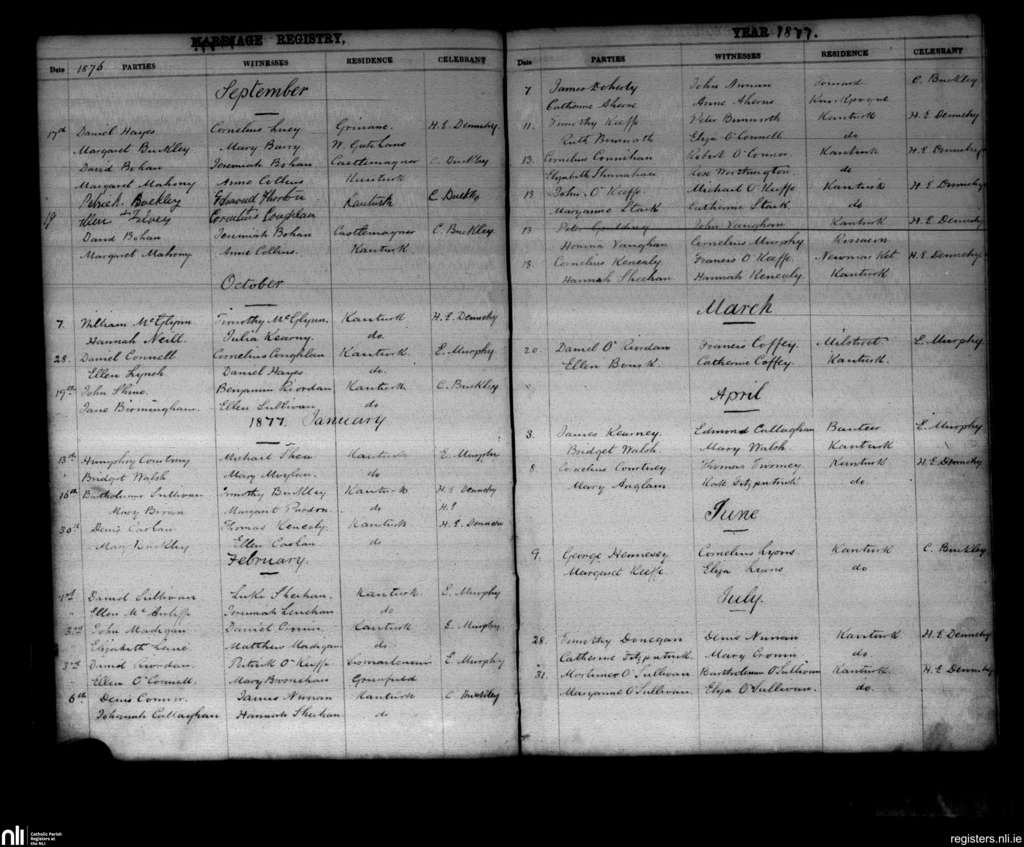 MARRIAGE REGISTRY,
1876
Date PARTIES WITNESSES RESIDENCE CELEBRANT
September
17th Daniel Hayes Cornelius Lucy Grinane. H. E. Dennehy
Margaret Buckley Mary Barry W. Gate Lane
David Bohan Jeremiah Bohan Castlemagner C. Buckley
Margaret Mahony Anne Collins Kanturk
Patrick Buckley Edward Kanturk C. Buckley
19 Ellen Cornelius Coughlan
David Bohan Jeremiah Bohan Castlemagner C. Buckley.
Margaret Mahony Anne Collins. Kanturk.
October
7. William McGlynn Timothy McGlynn. Kanturk H. E. Dennehy
Hannah Neill. Julia Kearny. do.
28. Daniel Connell Cornelius Coughlan Kanturk E. Murphy
Ellen Lynch Daniel Hayes do.
19th John Shine. Benjamin Riordan Kanturk C. Buckley
Jane Birmingham. Ellen Sullivan do
1877. January
13th Humphry Courtney Michael Shea Kanturk E. Murphy
" Bridget Walsh Mary do
16th Bartholomew Sullivan Timothy Buckley Kanturk H. E. Dennehy
Mary Brown Margaret do H. E
30th Denis Thomas Kenealy. Kanturk H. E. Dennehy
Mary Buckley Ellen do
February.
1st Daniel Sullivan Luke Sheehan. Kanturk E. Murphy
" Ellen McAuliffe Jeremiah Lenehan do
John Madigan Daniel Kanturk E. Murphy.
Elizabeth Lane Matthew Madigan do
David Riordan. Patrick O'Keeffe E. Murphy
" Ellen O'Connell. Mary Greenfield
6th Denis Connor. James Nunan Kanturk C. Buckley
Johannah Callaghan Hannah Sheehan do
YEAR 1877.
Date PARTIES WITNESSES RESIDENCE CELEBRANT
7 James Doherty John Nunan C. Buckley
Catherine Aherne Anne Aherne
11. Timothy Keeffe Peter Kanturk H. E. Dennehy
Ruth Eliza O'Connell do
13. Cornelius Robert O'Connor Kanturk H. E. Dennehy
Elizabeth Rose Worthington do
13 John O'Keeffe Michael O'Keeffe Kanturk H. E. Dennehy
Maryanne Stack Catherine Stack do
13 Peter John Vaughan Kanturk H. E. Dennehy
Honora Vaughan Cornelius Murphy
13. Cornelius Kenealy. Francis O'Keeffe Newmarket H. E. Dennehy
Hannah Sheehan Hannah Kenealy Kanturk
March
20 Daniel O'Riordan Francis Coffey. Milstreet E. Murphy
Ellen Catherine Coffey Kanturk.
April
3. James Kearney. Edmond Callaghan Banteer E. Murphy
Bridget Walsh Mary Walsh Kanturk
8 Cornelius Courtney Thomas Twomey Kanturk H. E. Dennehy
Mary Anglam Kate Fitzpatrick do
June
9. George Hennesey Cornelius Lyons Kanturk C. Buckley
Margaret Keeffe Eliza do
July.
28. Timothy Donegan Denis Nunan Kanturk H. E. Dennehy
Catherine Fitzpatrick Mary Cronin do
31. Mortimer O'Sullivan Bartholomew O'Sullivan Kanturk H. E. Dennehy
Maryanne O'Sullivan Eliza O'Sullivan. do.
nli
Catholic Parish
Registers at
the NLI
registers.nli.ie